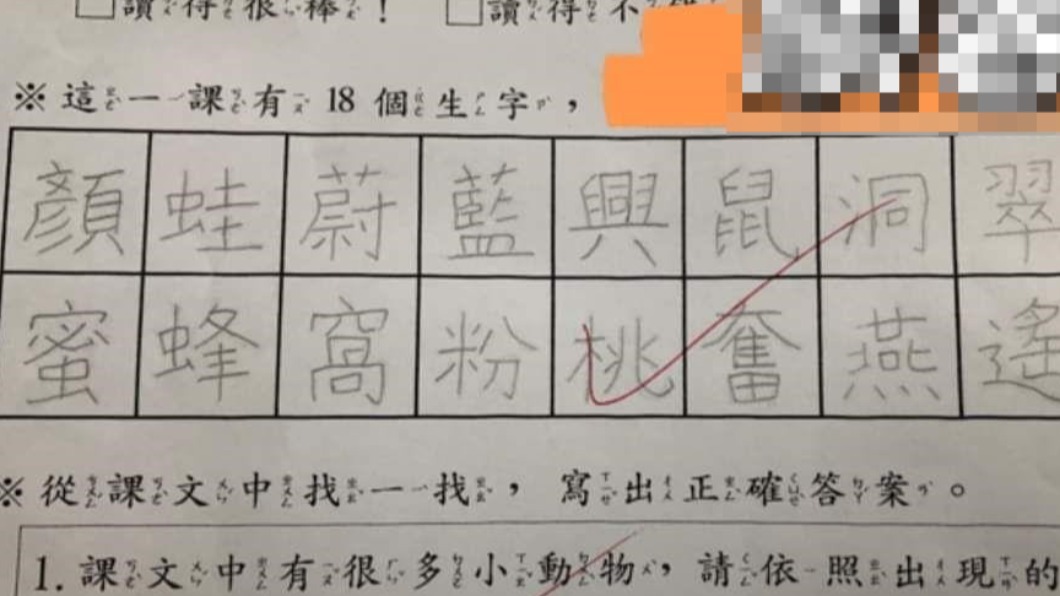 □讀得很棒！ □讀得不錯
※這一課有18個生字，
顏蛙蔚藍興鼠洞翠
蜜蜂窩粉桃奮燕遙
※從課文中找一找，寫出正確答案。
1. 課文中有很多小動物，請依照出現的